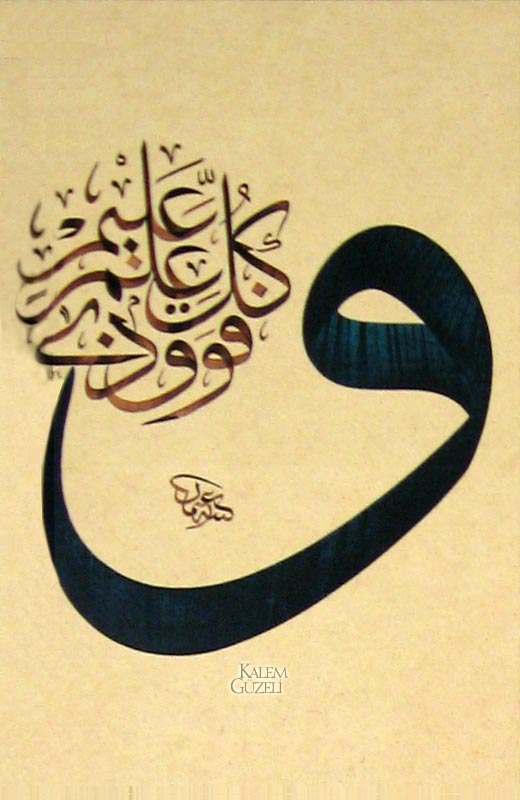 وَفَوْقَ كُلِّ ذِي عِلْمٍ عَلِيمٌ
KALEM
GÜZELİ